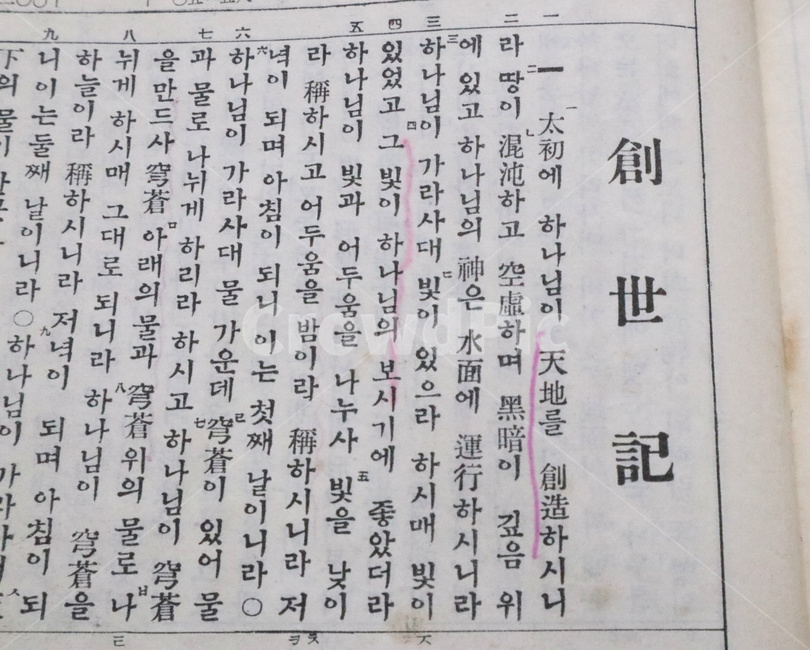 創世記
一 二 三 四 五 六 七 八 九
一 太初에 하나님이 天地를 創造하시니
라 땅이 混沌하고 空虛하며 黑暗이 깊음 위
에 있고 하나님의 神은 水面에 運行하시니라
하나님이 가라사대 빛이 있으라 하시매 빛이
있었고 그 빛이 하나님의 보시기에 좋았더라
하나님이 빛과 어두움을 나누사 빛을 낮이
라 稱하시고 어두움을 밤이라 稱하시니라 저
녁이 되며 아침이 되니 이는 첫째 날이니라 ○
하나님이 가라사대 물 가운데 穹蒼이 있어 물
과 물로 나뉘게 하리라 하시고 하나님이 穹蒼
을 만드사 穹蒼 아래의 물과 穹蒼 위의 물로 나
뉘게 하시매 그대로 되니라 하나님이 穹蒼을
하늘이라 稱하시니라 저녁이 되며 아침이 되
니 이는 둘째 날이니라 ○ 하나님이 가라사대
下의 물이
CrowdPic